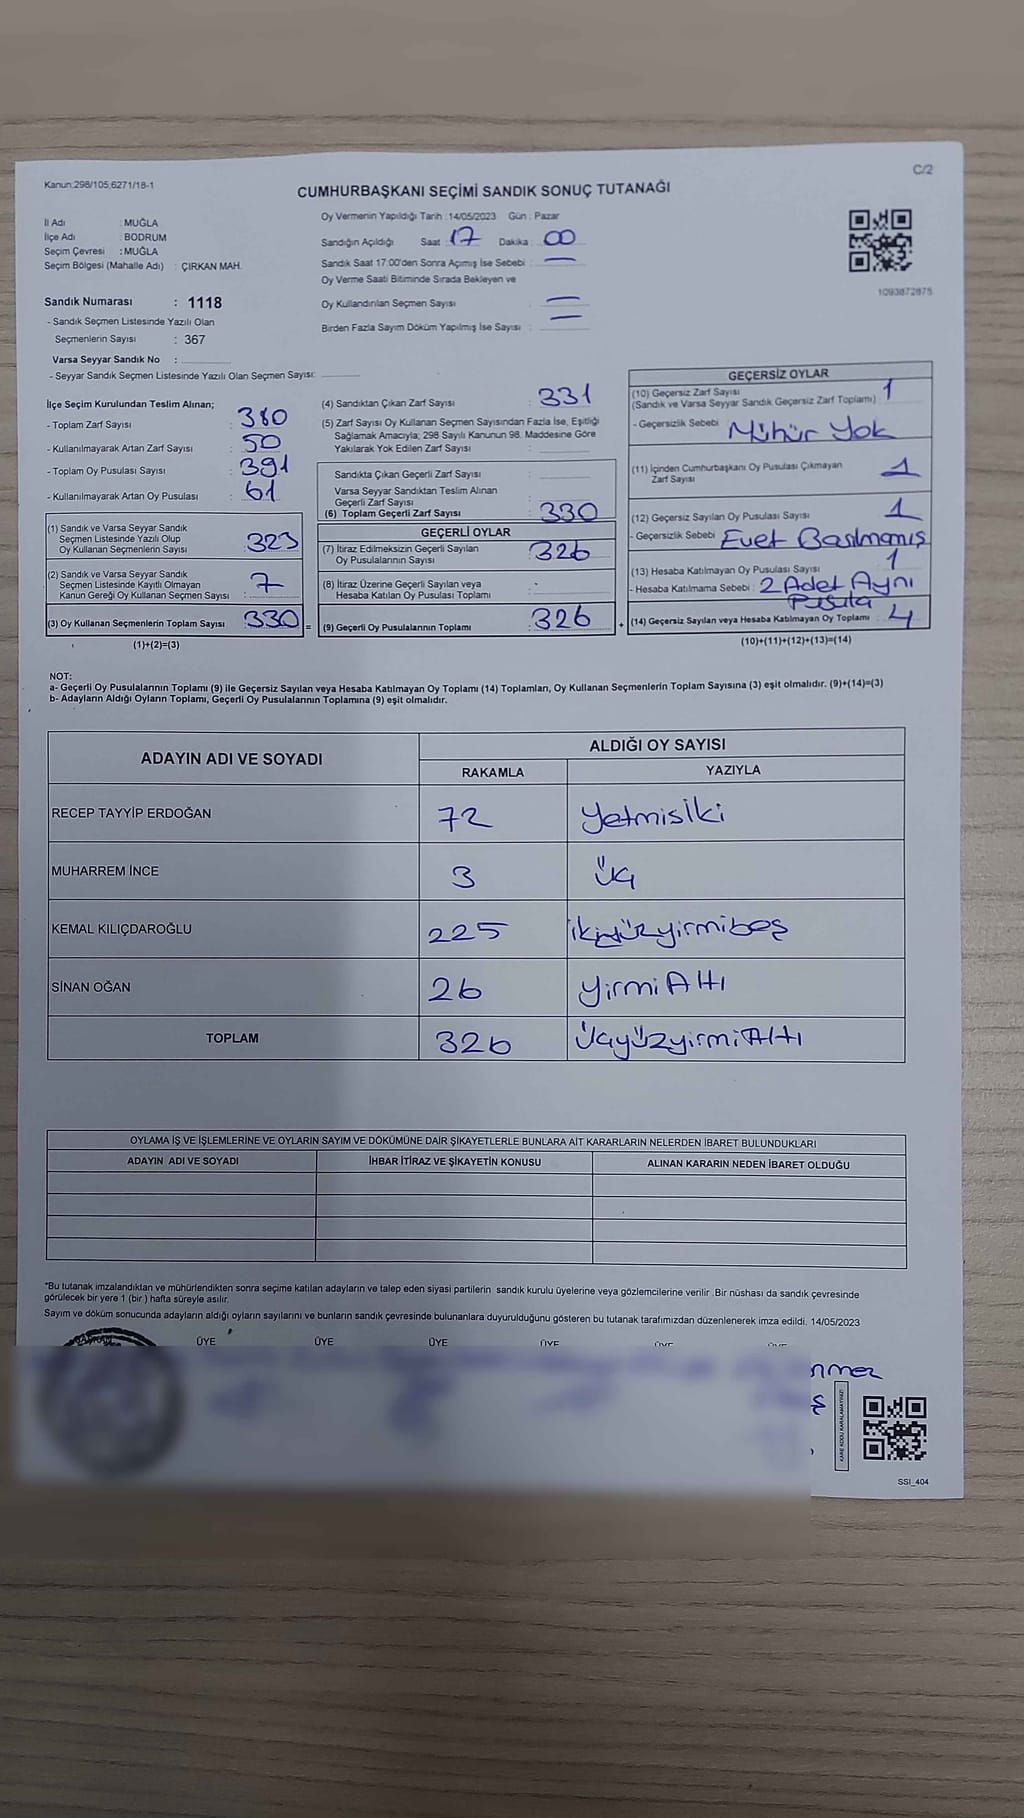 Kanun:298/105,6271/18-1
C/2
CUMHURBAŞKANI SEÇİMİ SANDIK SONUÇ TUTANAĞI
İl Adı : MUĞLA
İlçe Adı : BODRUM
Seçim Çevresi : MUĞLA
Seçim Bölgesi (Mahalle Adı) : ÇIRKAN MAH.
Sandık Numarası : 1118
- Sandık Seçmen Listesinde Yazılı Olan
Seçmenlerin Sayısı : 367
Varsa Seyyar Sandık No :
- Seyyar Sandık Seçmen Listesinde Yazılı Olan Seçmen Sayısı:
Oy Vermenin Yapıldığı Tarih : 14/05/2023 Gün : Pazar
Sandığın Açıldığı Saat : 17 Dakika : 00
Sandık Saat 17:00'den Sonra Açımış İse Sebebi : —
Oy Verme Saati Bitiminde Sırada Bekleyen ve
Oy Kullandırılan Seçmen Sayısı : —
Birden Fazla Sayım Döküm Yapılmış İse Sayısı : —
1093872875
İlçe Seçim Kurulundan Teslim Alınan;
- Toplam Zarf Sayısı : 380
- Kullanılmayarak Artan Zarf Sayısı : 50
- Toplam Oy Pusulası Sayısı : 391
- Kullanılmayarak Artan Oy Pusulası : 61
(1) Sandık ve Varsa Seyyar Sandık
Seçmen Listesinde Yazılı Olup
Oy Kullanan Seçmenlerin Sayısı : 323
(2) Sandık ve Varsa Seyyar Sandık
Seçmen Listesinde Kayıtlı Olmayan
Kanun Gereği Oy Kullanan Seçmen Sayısı : 7
(3) Oy Kullanan Seçmenlerin Toplam Sayısı : 330 =
(1)+(2)=(3)
(4) Sandıktan Çıkan Zarf Sayısı : 331
(5) Zarf Sayısı Oy Kullanan Seçmen Sayısından Fazla İse, Eşitliği
Sağlamak Amacıyla; 298 Sayılı Kanunun 98. Maddesine Göre
Yakılarak Yok Edilen Zarf Sayısı :
Sandıkta Çıkan Geçerli Zarf Sayısı :
Varsa Seyyar Sandıktan Teslim Alınan
Geçerli Zarf Sayısı :
(6) Toplam Geçerli Zarf Sayısı : 330
GEÇERLİ OYLAR
(7) İtiraz Edilmeksizin Geçerli Sayılan
Oy Pusulasının Sayısı : 326
(8) İtiraz Üzerine Geçerli Sayılan veya
Hesaba Katılan Oy Pusulası Toplamı :
(9) Geçerli Oy Pusulalarının Toplamı : 326 +
GEÇERSİZ OYLAR
(10) Geçersiz Zarf Sayısı
(Sandık ve Varsa Seyyar Sandık Geçersiz Zarf Toplamı) : 1
- Geçersizlik Sebebi : Mühür Yok
(11) İçinden Cumhurbaşkanı Oy Pusulası Çıkmayan
Zarf Sayısı : 1
(12) Geçersiz Sayılan Oy Pusulası Sayısı : 1
- Geçersizlik Sebebi : Evet Basılmamış
(13) Hesaba Katılmayan Oy Pusulası Sayısı : 1
- Hesaba Katılmama Sebebi : 2 Adet Aynı
Pusula
(14) Geçersiz Sayılan veya Hesaba Katılmayan Oy Toplamı : 4
(10)+(11)+(12)+(13)=(14)
NOT:
a- Geçerli Oy Pusulalarının Toplamı (9) ile Geçersiz Sayılan veya Hesaba Katılmayan Oy Toplamı (14) Toplamları, Oy Kullanan Seçmenlerin Toplam Sayısına (3) eşit olmalıdır. (9)+(14)=(3)
b- Adayların Aldığı Oyların Toplamı, Geçerli Oy Pusulalarının Toplamına (9) eşit olmalıdır.
ADAYIN ADI VE SOYADI
ALDIĞI OY SAYISI
RAKAMLA YAZIYLA
RECEP TAYYİP ERDOĞAN 72 Yetmisiki
MUHARREM İNCE 3 üç
KEMAL KILIÇDAROĞLU 225 ikiyüzyirmibeş
SİNAN OĞAN 26 yirmi Altı
TOPLAM 326 üçyüzyirmiAltı
OYLAMA İŞ VE İŞLEMLERİNE VE OYLARIN SAYIM VE DÖKÜMÜNE DAİR ŞİKAYETLERLE BUNLARA AİT KARARLARIN NELERDEN İBARET BULUNDUKLARI
ADAYIN ADI VE SOYADI İHBAR İTİRAZ VE ŞİKAYETİN KONUSU ALINAN KARARIN NEDEN İBARET OLDUĞU
*Bu tutanak imzalandıktan ve mühürlendikten sonra seçime katılan adayların ve talep eden siyasi partilerin sandık kurulu üyelerine veya gözlemcilerine verilir .Bir nüshası da sandık çevresinde
görülecek bir yere 1 (bir ) hafta süreyle asılır.
Sayım ve döküm sonucunda adayların aldığı oyların sayılarını ve bunların sandık çevresinde bulunanlara duyurulduğunu gösteren bu tutanak tarafımızdan düzenlenerek imza edildi. 14/05/2023
ÜYE ÜYE ÜYE ÜYE ÜYE ÜYE
SSI_404